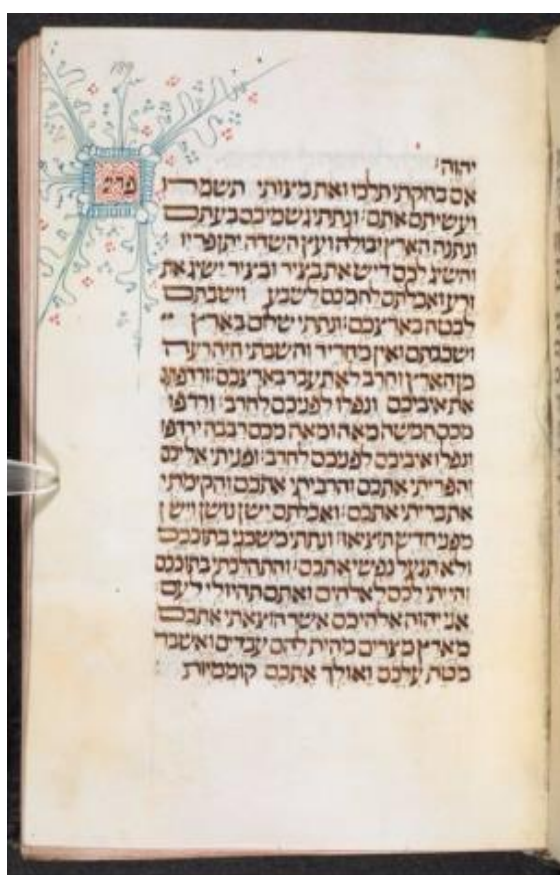 189
פרש
יהוה׃
אם בחקתי תלכו ואת מצותי תשמרו
ועשיתם אתם׃ ונתתי גשמיכם בעתם
ונתנה הארץ יבולה ועץ השדה יתן פריו
והשיג לכם דיש את בציר ובציר ישיג את
זרע ואכלתם לחמכם לשבע וישבתם
לבטח בארצכם׃ ונתתי שלום בארץ
ושכבתם ואין מחריד והשבתי חיה רעה
מן הארץ וחרב לא תעבר בארצכם׃ ורדפתם
את איביכם ונפלו לפניכם לחרב׃ ורדפו
מכם חמשה מאה ומאה מכם רבבה ירדפו
ונפלו איביכם לפניכם לחרב׃ ופניתי אליכם
והפריתי אתכם והרביתי אתכם והקימתי
את בריתי אתכם׃ ואכלתם ישן נושן וישן
מפני חדש תוציאו׃ ונתתי משכני בתוככם
ולא תגעל נפשי אתכם׃ והתהלכתי בתוככם
והייתי לכם לאלהים ואתם תהיו לי לעם׃
אני יהוה אלהיכם אשר הוצאתי אתכם
מארץ מצרים מהית להם עבדים ואשבר
מטת עלכם ואולך אתכם קוממיות